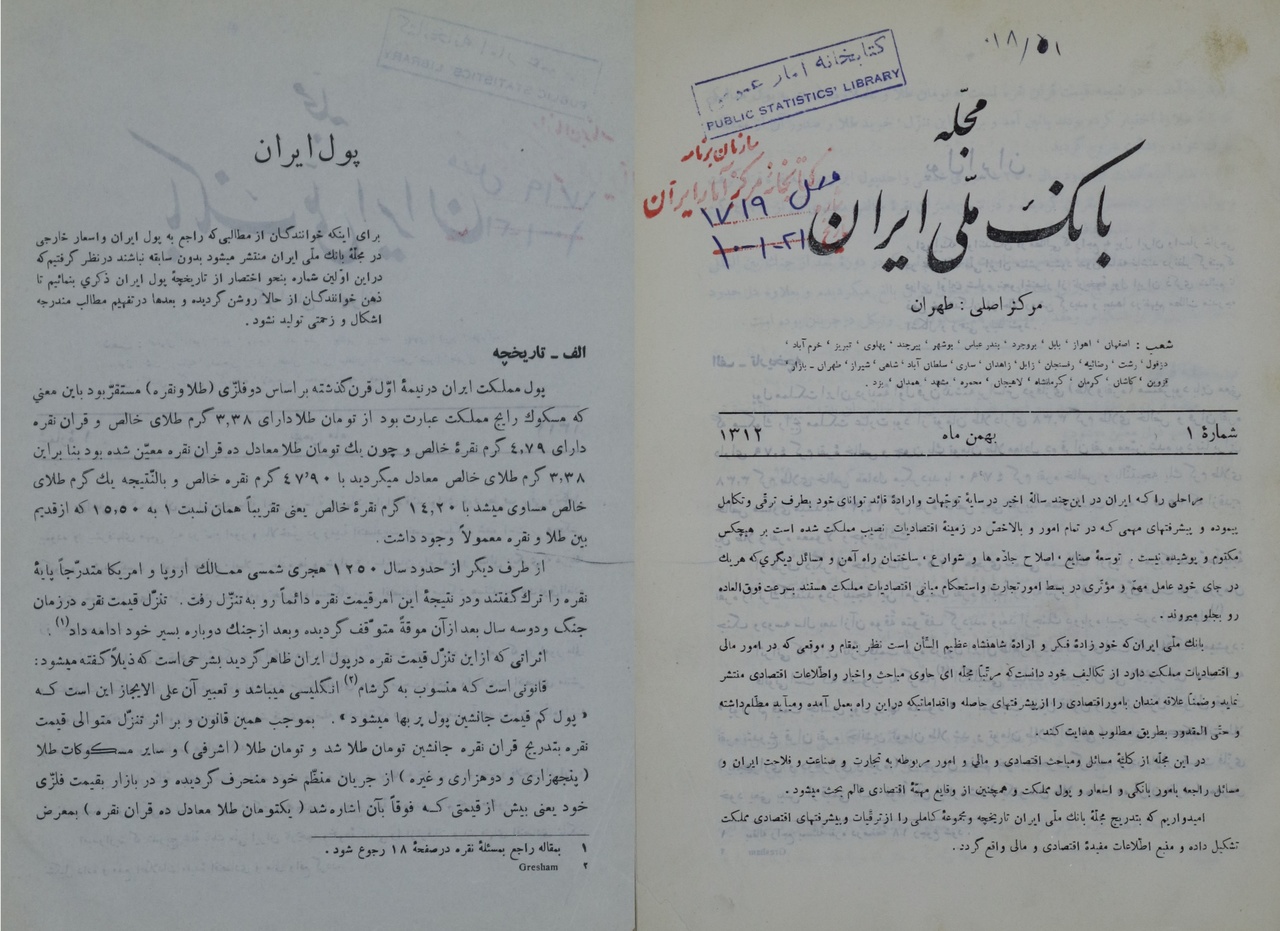 ۰۱۸/۵۱
کتابخانه آمار عمومی
PUBLIC STATISTICS' LIBRARY
مجلّه
بانک ملّی ایران
سازمان برنامه
کتابخانهٔ مرکز آمار ایران
۱۷۱۹
۱۰-۱-۲۱
مرکز اصلی : طهران
شعب : اصفهان ٬ اهواز ٬ بابل ٬ بروجرد ٬ بندر عباس ٬ بوشهر ٬ بیرجند ٬ پهلوی ٬ تبریز ٬ خرم آباد ٬
دزفول ٬ رشت ٬ رضائیه ٬ رفسنجان ٬ زابل ٬ زاهدان ٬ ساری ٬ سلطان آباد ٬ شاهی ٬ شیراز ٬ طهران ـ بازار ٬
قزوین ٬ کاشان ٬ کرمان ٬ کرمانشاه ٬ لاهیجان ٬ محمره ٬ مشهد ٬ همدان ٬ یزد .
شمارهٔ ۱ بهمن ماه ۱۳۱۲
مراحلی را که ایران در این چند سالهٔ اخیر در سایهٔ توجّهات و ارادهٔ قائد توانای خود بطرف ترقّی و تکامل
پیموده و پیشرفتهای مهمی که در تمام امور و بالاخصّ در زمینهٔ اقتصادیات نصیب مملکت شده است بر هیچکس
مکتوم و پوشیده نیست . توسعهٔ صنایع ٬ اصلاح جادّه ها و شوارع ٬ ساختمان راه آهن و مسائل دیگری که هر یك
در جای خود عامل مهمّ و مؤثّری در بسط امور تجارت و استحکام مبانی اقتصادیات مملکت هستند بسرعت فوق العاده
رو بجلو میروند .
بانك ملّی ایران که خود زادهٔ فکر و ارادهٔ شاهنشاه عظیم الشأن است نظر بمقام و موقعی که در امور مالی
و اقتصادیات مملکت دارد از تکالیف خود دانست که مرتّباً مجلّه ای حاوی مباحث و اخبار و اطّلاعات اقتصادی منتشر
نماید و ضمناً علاقه مندان بامور اقتصادی را از پیشرفتهای حاصله و اقداماتیکه در این راه بعمل آمده و میآید مطّلع داشته
و حتّی المقدور بطریق مطلوب هدایت کند .
در این مجلّه از کلّیهٔ مسائل و مباحث اقتصادی و مالی و امور مربوطه به تجارت و صناعت و فلاحت ایران و
مسائل راجعه بامور بانکی و اسعار و پول مملکت و همچنین از وقایع مهمّهٔ اقتصادی عالم بحث میشود .
امیدواریم که بتدریج مجلّهٔ بانك ملّی ایران تاریخچه و مجموعهٔ کاملی را از ترقّیات و پیشرفتهای اقتصادی مملکت
تشکیل داده و منبع اطّلاعات مفیدهٔ اقتصادی و مالی واقع گردد .
پول ایران
برای اینکه خوانندگان از مطالبی که راجع به پول ایران و اسعار خارجی
در مجلّهٔ بانك ملّی ایران منتشر میشود بدون سابقه نباشند در نظر گرفتیم که
در این اوّلین شماره بنحو اختصار از تاریخچهٔ پول ایران ذکری بنمائیم تا
ذهن خوانندگان از حالا روشن گردیده و بعدها در تفهیم مطالب مندرجه
اشکال و زحمتی تولید نشود .
الف ـ تاریخچه
پول مملکت ایران در نیمهٔ اوّل قرن گذشته بر اساس دو فلزّی (طلا و نقره) مستقرّ بود باین معنی
که مسکوك رایج مملکت عبارت بود از تومان طلا دارای ۳٫۳۸ گرم طلای خالص و قران نقره
دارای ۴٫۷۹ گرم نقرهٔ خالص و چون یك تومان طلا معادل ده قران نقره معیّن شده بود بنا براین
۳٫۳۸ گرم طلای خالص معادل میگردید با ۴۷٫۹۰ گرم نقره خالص و بالنّتیجه یك گرم طلای
خالص مساوی میشد با ۱۴٫۲۰ گرم نقرهٔ خالص یعنی تقریباً همان نسبت ۱ به ۱۵٫۵۰ که از قدیم
بین طلا و نقره معمولاً وجود داشت .
از طرف دیگر از حدود سال ۱۲۵۰ هجری شمسی ممالك اروپا و امریکا متدرّجاً پایهٔ
نقره را ترك گفتند و در نتیجهٔ این امر قیمت نقره دائماً رو به تنزّل رفت . تنزّل قیمت نقره در زمان
جنگ و دو سه سال بعد از آن موقةً متوّقف گردیده و بعد از جنك دوباره بسیر خود ادامه داد(۱).
اثراتی که از این تنزّل قیمت نقره در پول ایران ظاهر گردید بشرحی است که ذیلاً گفته میشود :
قانونی است که منسوب به گرشام(۲) انگلیسی میباشد و تعبیر آن علی الایجاز این است که
« پول کم قیمت جانشین پول پر بها میشود » . بموجب همین قانون و بر اثر تنزّل متوالی قیمت
نقره بتدریج قران نقره جانشین تومان طلا شد و تومان طلا (اشرفی) و سایر مسکوکات طلا
(پنجهزاری و دوهزاری و غیره) از جریان منظّم خود منحرف گردیده و در بازار بقیمت فلزّی
خود یعنی بیش از قیمتی که فوقاً بآن اشاره شد (یکتومان طلا معادل ده قران نقره) بمعرض
۱ بمقاله راجع بمسئلهٔ نقره در صفحهٔ ۱۸ رجوع شود .
۲ Gresham